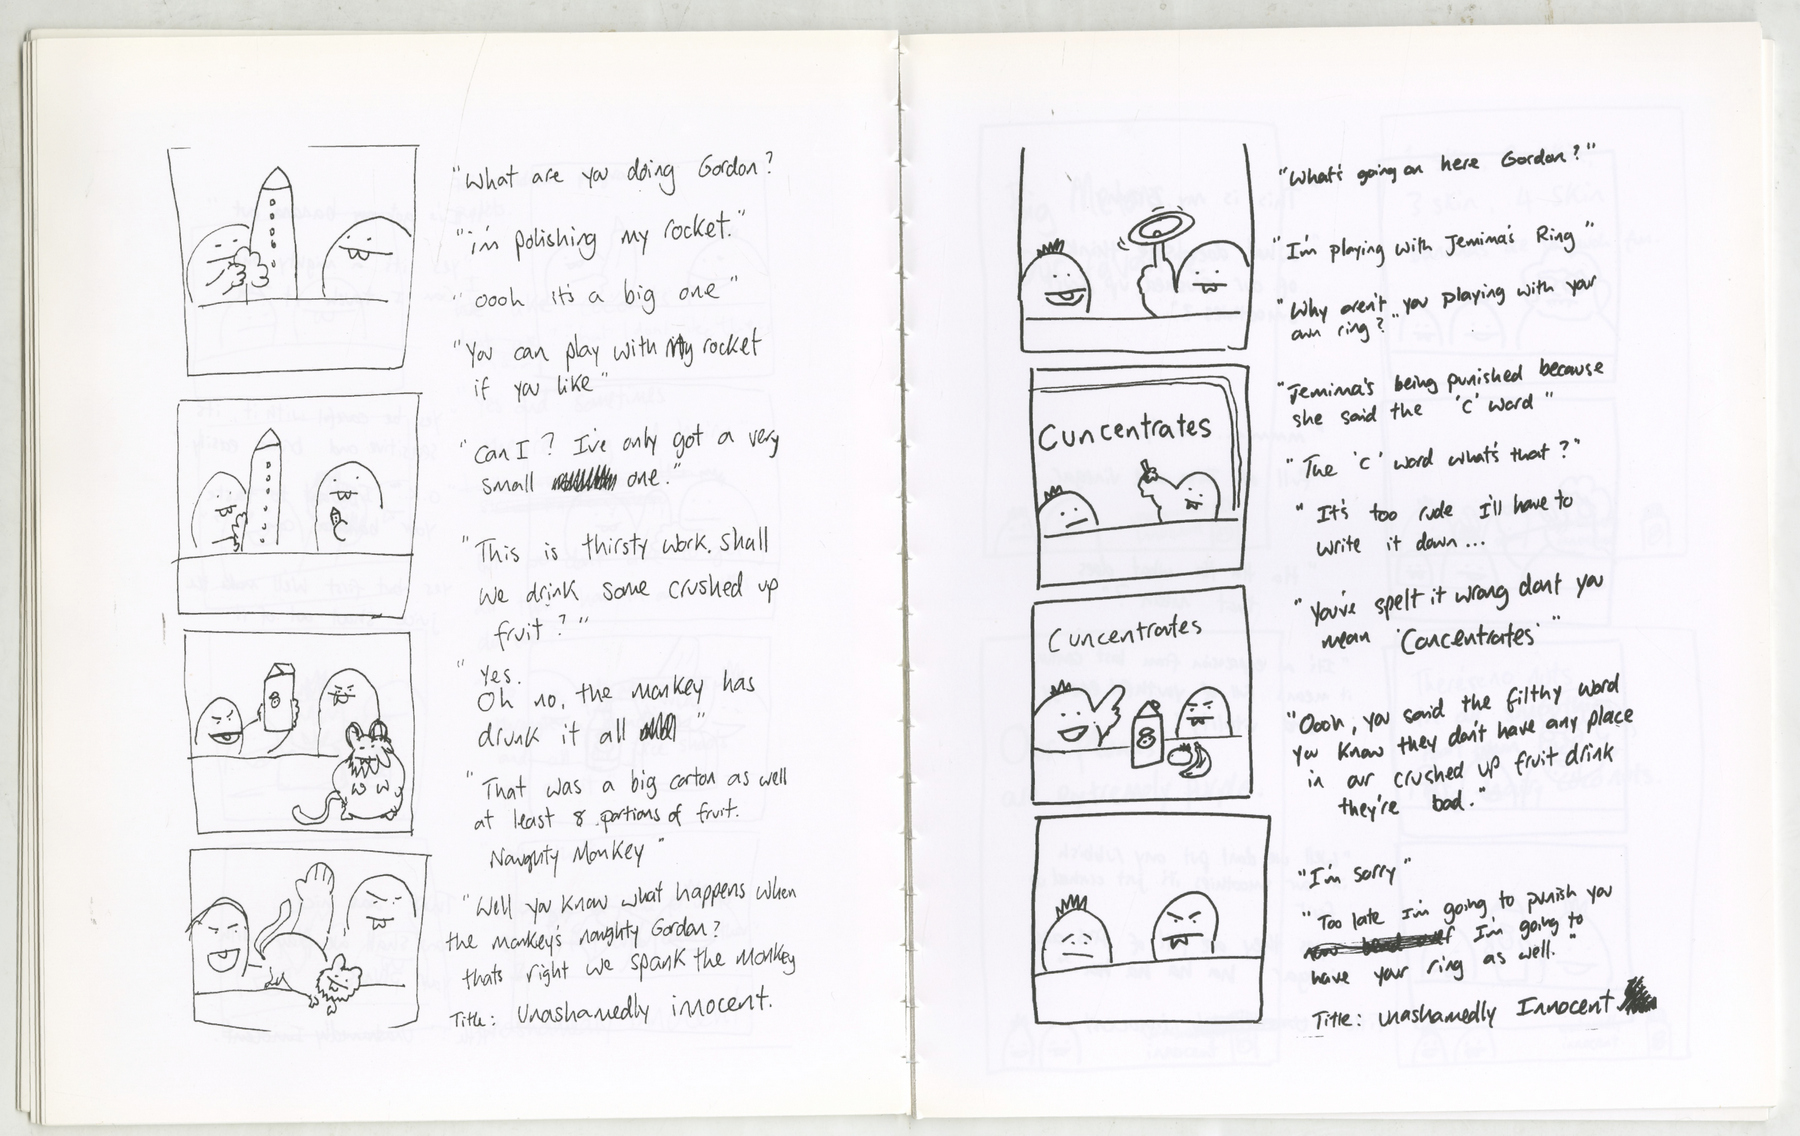 "What are you doing Gordon?
"i'm polishing my rocket."
"oooh it's a big one"
"You can play with my rocket
if you like"
"Can I? I've only got a very
small one."
"This is thirsty work. Shall
we drink some crushed up
fruit?"
"Yes.
Oh no, the monkey has
drunk it all "
"That was a big carton as well
at least 8 portions of fruit.
Naughty Monkey"
"Well you know what happens when
the monkey's naughty Gordon?
thats right we spank the monkey
Title: Unashamedly innocent.
8
"What's going on here Gordon?"
"I'm playing with Jemima's Ring"
"Why aren't you playing with your
own ring?"
"Jemima's being punished because
she said the 'C' word"
"The 'C' word what's that?"
"It's too rude I'll have to
write it down...
"You've spelt it wrong dont you
mean 'Concentrates'"
"Oooh, you said the filthy word
you know they don't have any place
in our crushed up fruit drink
they're bad."
"I'm sorry"
"Too late I'm going to punish you
I'm going to
have your ring as well."
Title: unashamedly Innocent
Cuncentrates
Cuncentrates
8